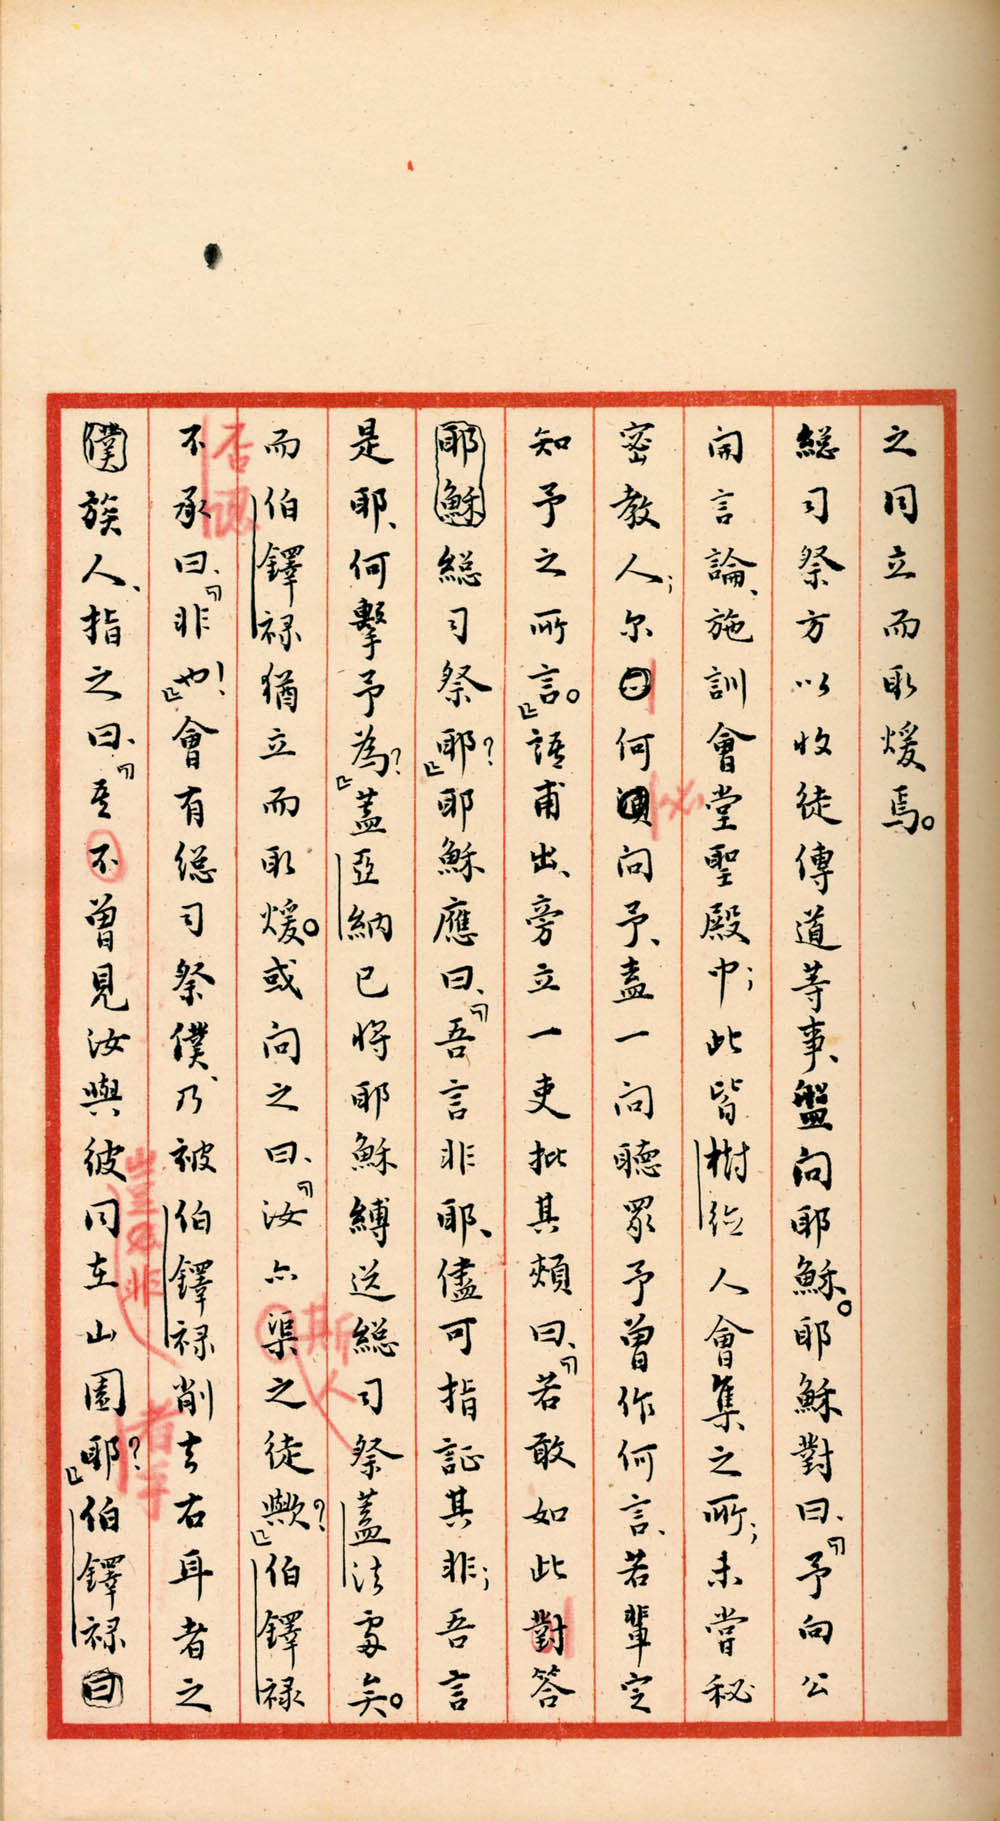 之同立而取煖焉。
總司祭方以收徒傳道等事、盤問耶穌。耶穌對曰、「予向公
開言論、施訓會堂聖殿中；此皆樹德人會集之所；未嘗秘
密教人；尔曰何須問予、盍一問聽眾予曾作何言、若輩定
必
知予之所言。」語甫出、旁立一吏批其頰曰、「若敢如此對答
耶穌總司祭耶？」耶穌應曰、「吾言非耶、儘可指証其非；吾言
是耶、何擊予為？」蓋亞納已將耶穌縛送總司祭蓋法處矣。
而伯鐸祿猶立而取煖。或問之曰、「汝亦渠之徒歟？」伯鐸祿
斯人
否認
不承曰、「非也！」會有總司祭僕、乃被伯鐸祿削去右耳者之
僕族人、指之曰、「吾不曾見汝與彼同在山園耶？」伯鐸祿曰
豈非
者乎